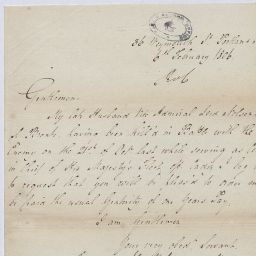 36 Weymouth St Portland
6th February 1806
Gentlemen
My late Husband Vice Admiral Lord Nelson
Bronte, having been killed in Battle with the
Enemy on the 21st of Oct last while serving as
in Chief of His Majesty's Fleet off Cadiz I beg
to request that you will be pleas'd to order
be paid the usual Gratuity of one Years Pay,
I am, Gentlemen
Your very obedt Servant